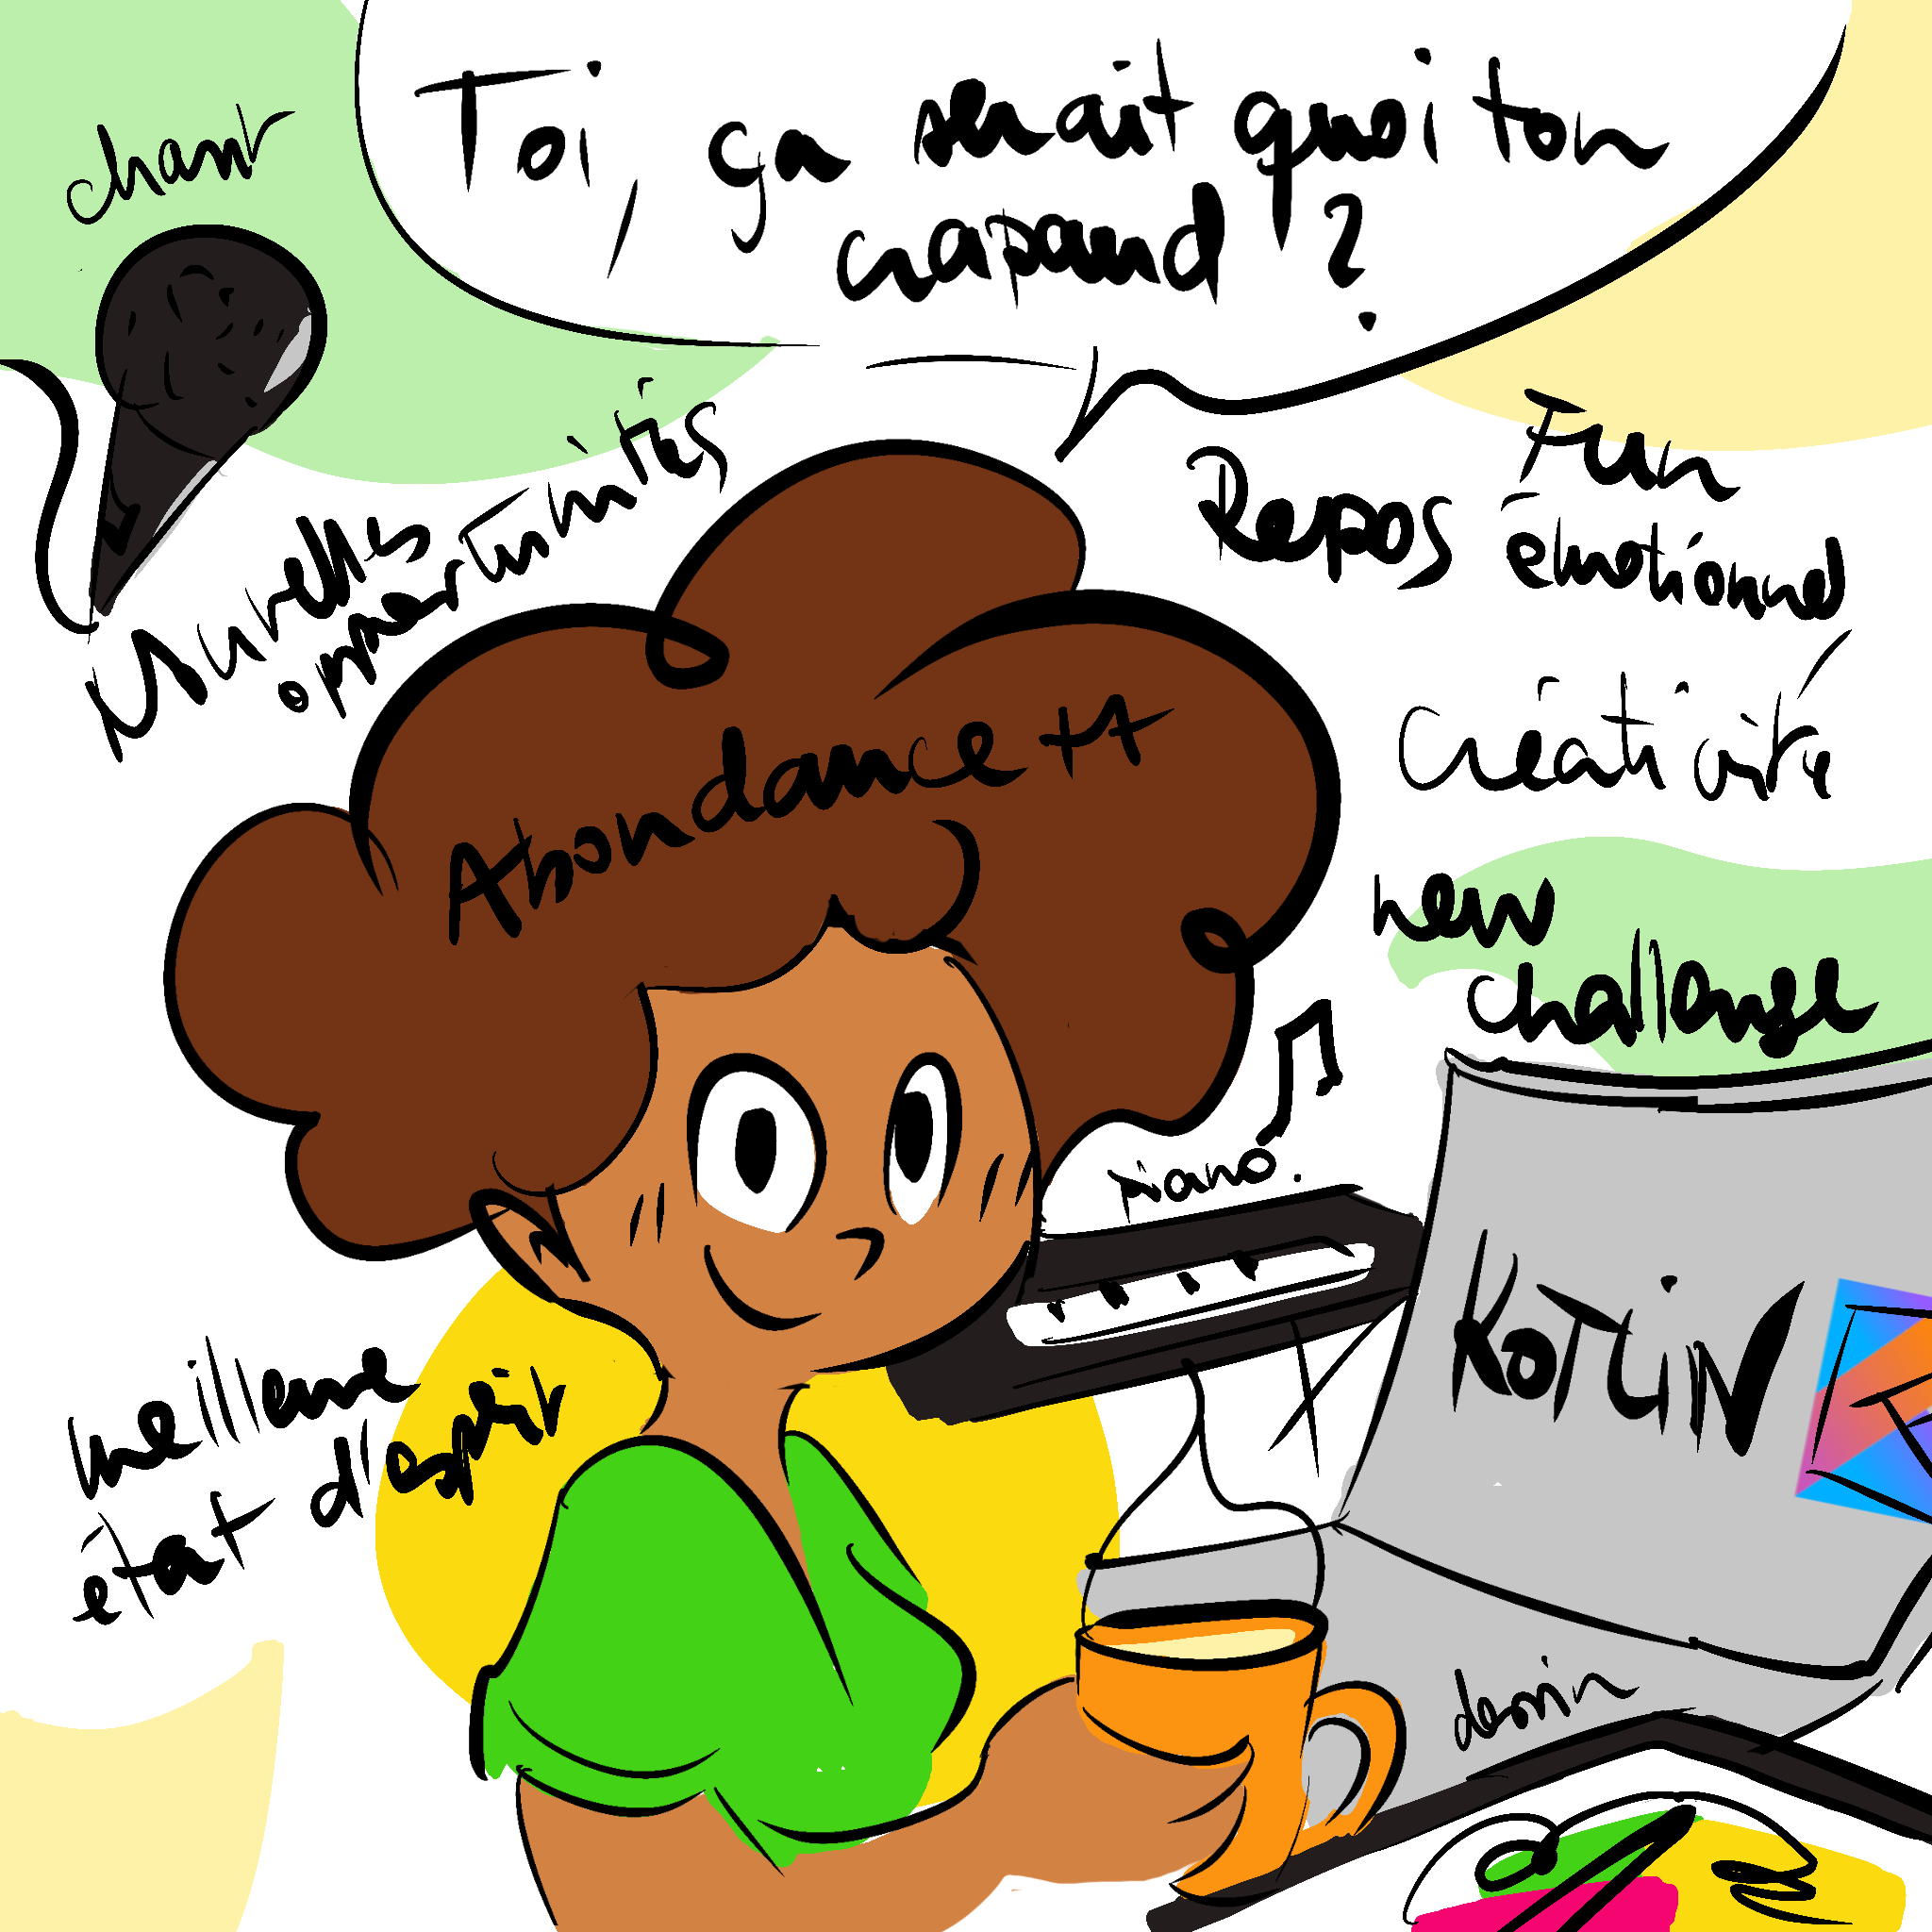 Toi, ça serait quoi ton
crapaud ?
chant
Nouvelles
opportunités
Repos
Fun
émotionnel
Créativité
Abondance ++
new
challenge
piano.
KOTLIN
meilleure
état d'esprit
dessin